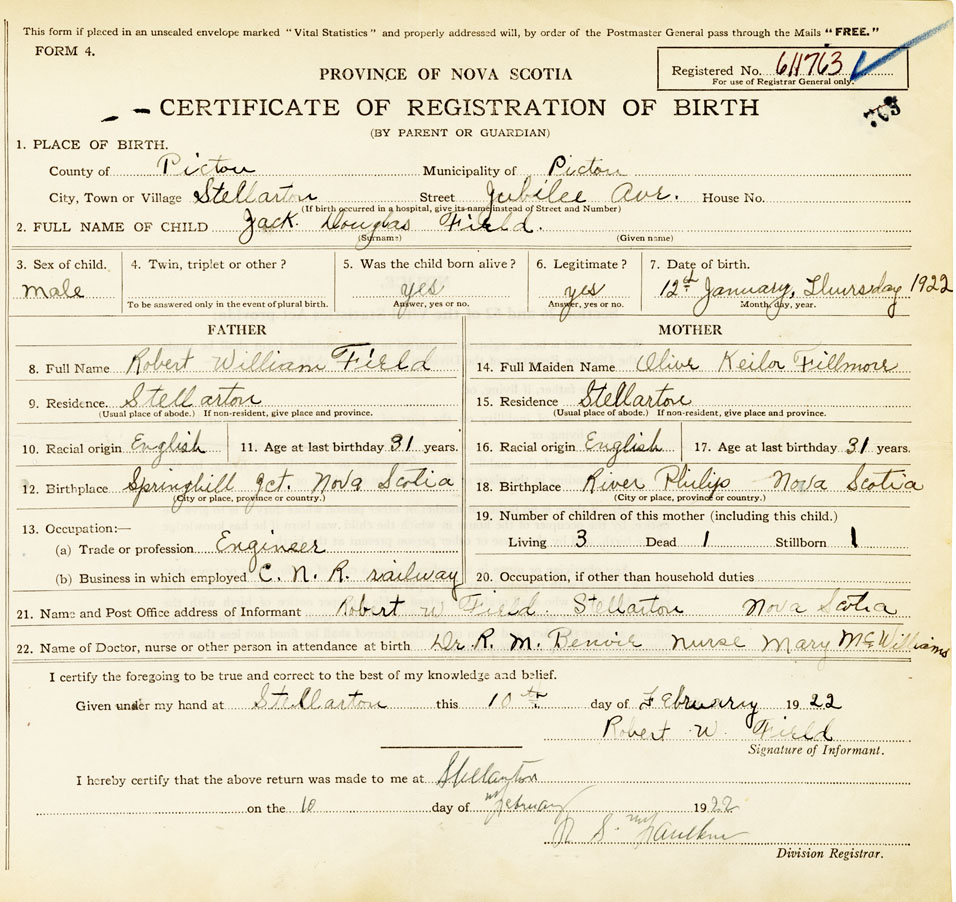 This form if placed in an unsealed envelope marked "Vital Statistics" and properly addressed will, by order of the Postmaster General pass through the Mails "FREE."
FORM 4.
Registered No. 611763
For use of Registrar General only.
PROVINCE OF NOVA SCOTIA
763
CERTIFICATE OF REGISTRATION OF BIRTH
(BY PARENT OR GUARDIAN)
1. PLACE OF BIRTH.
County of Pictou Municipality of Pictou
City, Town or Village Stellarton Street Jubilee Ave. House No.
(If birth occurred in a hospital, give its name instead of Street and Number)
2. FULL NAME OF CHILD Jack Douglas Field.
(Surname) (Given name)
3. Sex of child. 4. Twin, triplet or other? 5. Was the child born alive? 6. Legitimate? 7. Date of birth.
Male yes yes 12th January, Thursday 1922
To be answered only in the event of plural birth. Answer, yes or no. Answer, yes or no. Month, day, year.
FATHER MOTHER
8. Full Name Robert William Field 14. Full Maiden Name Olive Keilor Fillmore
9. Residence. Stellarton 15. Residence Stellarton
(Usual place of abode.) If non-resident, give place and province. (Usual place of abode.) If non-resident, give place and province.
10. Racial origin English 11. Age at last birthday 31 years. 16. Racial origin English 17. Age at last birthday 31 years.
12. Birthplace Springhill Jct. Nova Scotia 18. Birthplace River Philip Nova Scotia
(City or place, province or country.) (City or place, province or country.)
13. Occupation:— 19. Number of children of this mother (including this child.)
(a) Trade or profession Engineer Living 3 Dead 1 Stillborn 1
(b) Business in which employed C. N. R. railway 20. Occupation, if other than household duties
21. Name and Post Office address of Informant Robert W Field Stellarton Nova Scotia
22. Name of Doctor, nurse or other person in attendance at birth Dr. R. M. Benvie Nurse Mary McWilliams
I certify the foregoing to be true and correct to the best of my knowledge and belief.
Given under my hand at Stellarton this 10th day of February 1922
Robert W. Field
Signature of Informant.
I hereby certify that the above return was made to me at Stellarton
on the 10 day of February 1922
Division Registrar.